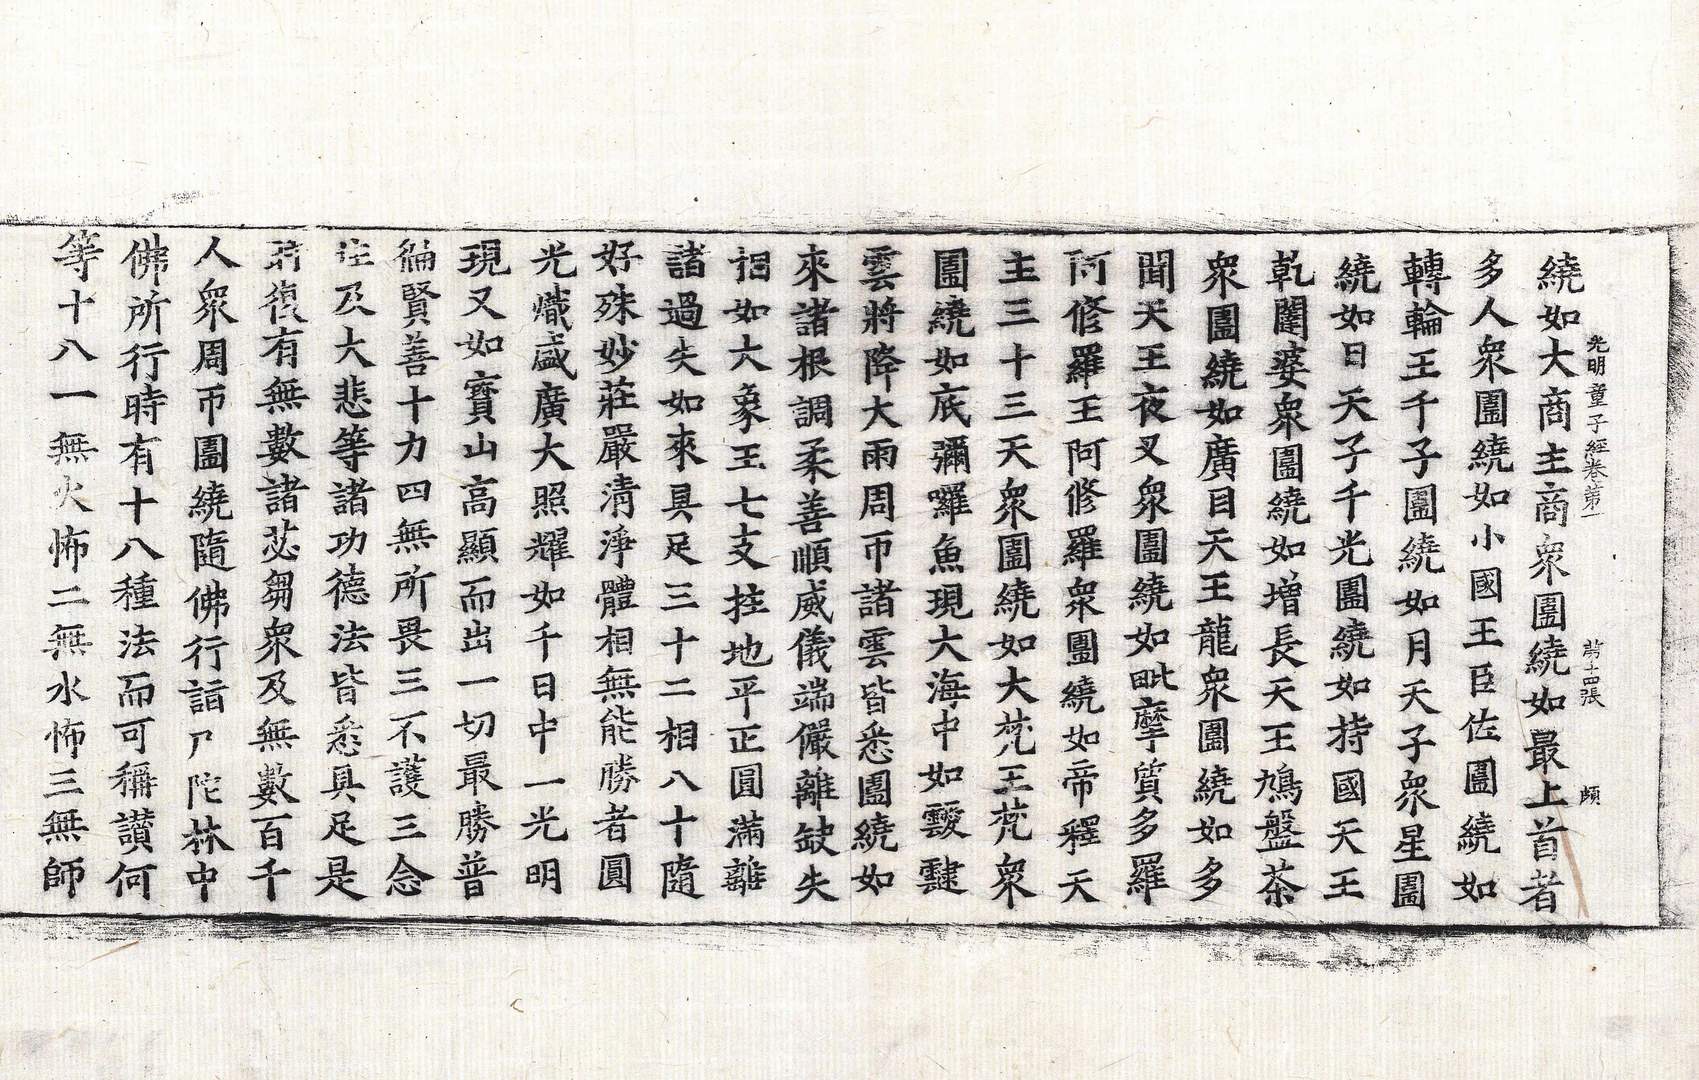 光明童子經卷苐一　苐十四張　頗
繞如大商主商衆圍繞如最上首者
多人衆圍繞如小國王臣佐圍繞如
轉輪王千子圍繞如月天子衆星圍
繞如日天子千光圍繞如持國天王
乾闥婆衆圍繞如增長天王鳩盤茶
衆圍繞如廣目天王龍衆圍繞如多
聞天王夜叉衆圍繞如毗摩質多羅
阿修羅王阿修羅衆圍繞如帝釋天
主三十三天衆圍繞如大梵王梵衆
圍繞如底彌囉魚現大海中如靉靆
雲將降大雨周帀諸雲皆悉圍繞如
來諸根調柔善順威儀端儼離缺失
相如大象王七支拄地平正圓滿離
諸過失如來具足三十二相八十隨
好殊妙莊嚴清淨體相無能勝者圓
光熾盛廣大照耀如千日中一光明
現又如寶山高顯而出一切最勝普
徧賢善十力四無所畏三不護三念
住及大悲等諸功德法皆悉具足是
時復有無數諸苾芻衆及無數百千
人衆周帀圍繞隨佛行詣尸陀林中
佛所行時有十八種法而可稱讃何
等十八一無火怖二無水怖三無師